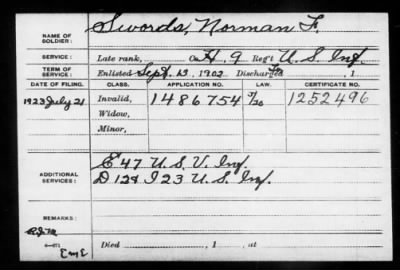 NAME OF SOLDIER: Swords, Norman F.
SERVICE: Late rank, Co H, 9 Reg't U.S. Inf.
TERM OF SERVICE: Enlisted Sept. 1902 Discharged , 1
DATE OF FILING. CLASS. APPLICATION NO. LAW. CERTIFICATE NO.
1923 July 21 Invalid, 1486754 1252496
Widow,
Minor,
ADDITIONAL SERVICES: E 47 U.S.V. Inf.
D 12 & I 23 U.S. Inf.
REMARKS:
Died , 1 , at